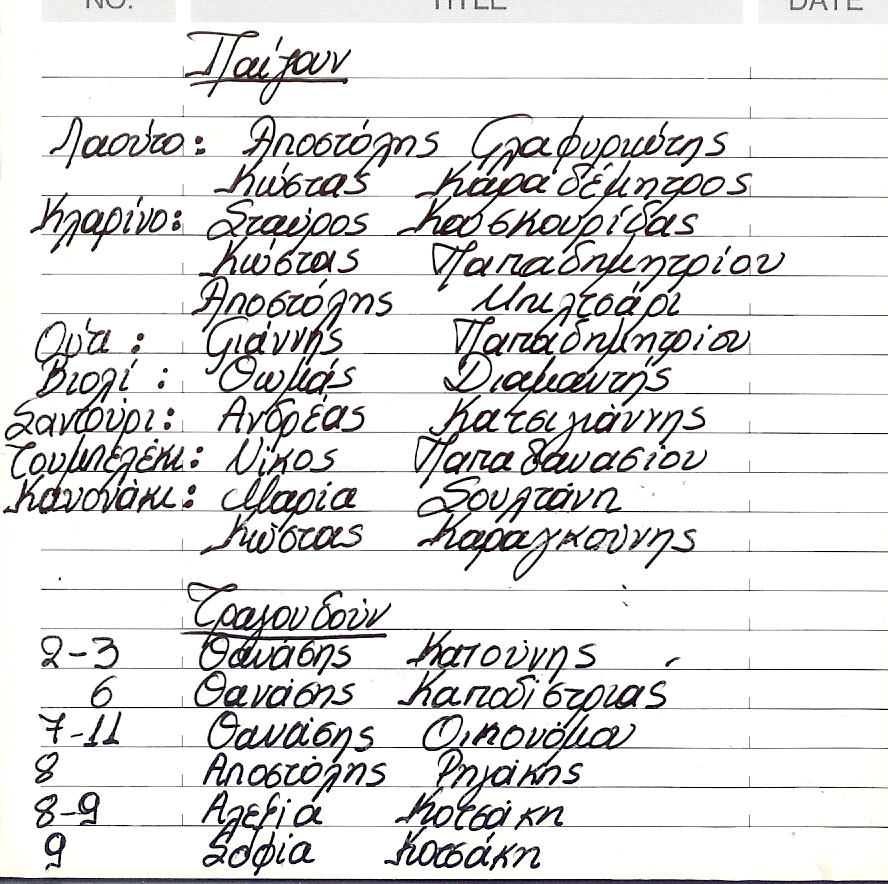 NO. TITLE DATE
Παίζουν
Λαούτο: Αποστόλης Γλαφυρκώτης
Κώστας Καραδέμητρος
Κλαρίνο: Σταύρος Κουσκουρίδας
Κώστας Παπαδημητρίου
Αποστόλης Μπλτσάρι
Ούτι: Γιάννης Παπαδημητρίου
Βιολί: Θωμάς Διαμαντής
Σαντούρι: Ανδρέας Κατσιγιάννης
Τουμπελέκι: Νίκος Παπαθανασίου
Κανονάκι: Μαρία Σουλτάνη
Κώστας Καραγκούνης
Τραγουδούν
2-3 Θανάσης Κατούνης
6 Θανάσης Καποδίστριας
7-11 Θανάσης Οικονόμου
8 Αποστόλης Ρηγάκης
8-9 Αλεξία Κοτσάκη
9 Σοφία Κοτσάκη